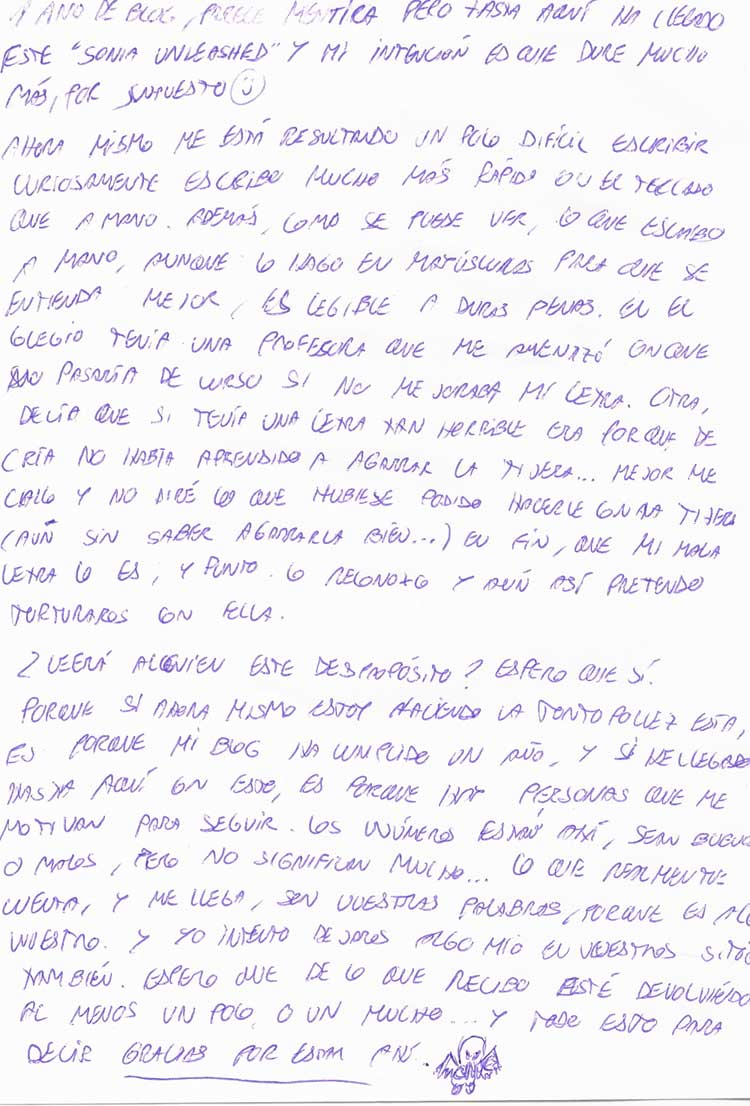 1 AÑO DE BLOG, PARECE MENTIRA PERO HASTA AQUÍ HA LLEGADO
ESTE "SONIA UNLEASHED" Y MI INTENCIÓN ES QUE DURE MUCHO
MÁS, POR SUPUESTO
AHORA MISMO ME ESTÁ RESULTANDO UN POCO DIFÍCIL ESCRIBIR
CURIOSAMENTE ESCRIBO MUCHO MÁS RÁPIDO CON EL TECLADO
QUE A MANO. ADEMÁS, COMO SE PUEDE VER, LO QUE ESCRIBO
A MANO, AUNQUE LO HAGO EN MAYÚSCULAS PARA QUE SE
ENTIENDA MEJOR, ES LEGIBLE A DURAS PENAS. EN EL
COLEGIO TENÍA UNA PROFESORA QUE ME AMENAZÓ CON QUE
NO PASARÍA DE CURSO SI NO MEJORABA MI LETRA. OTRA,
DECÍA QUE SI TENÍA UNA LETRA TAN HORRIBLE ERA PORQUE DE
CRÍA NO HABÍA APRENDIDO A AGARRAR LA TIJERA... MEJOR ME
CALLO Y NO DIRÉ LO QUE HUBIESE PODIDO HACERLE CON LA TIJERA
(AÚN SIN SABER AGARRARLA BIEN...) EN FIN, QUE MI MALA
LETRA LO ES, Y PUNTO. LO RECONOZCO Y AÚN ASÍ PRETENDO
TORTURAROS CON ELLA.
¿LEERÁ ALGUIEN ESTE DESPROPÓSITO? ESPERO QUE SÍ.
PORQUE SI AHORA MISMO ESTOY HACIENDO LA TONTOPOLLEZ ESTA,
ES PORQUE MI BLOG HA CUMPLIDO UN AÑO, Y SI HE LLEGADO
HASTA AQUÍ CON ESTO, ES PORQUE HAY PERSONAS QUE ME
MOTIVAN PARA SEGUIR. LOS NÚMEROS ESTÁN AHÍ, SEAN BUENOS
O MALOS, PERO NO SIGNIFICAN MUCHO... LO QUE REALMENTE
CUENTA, Y ME LLEGA, SON VUESTRAS PALABRAS, PORQUE ES ALGO
VUESTRO. Y YO INTENTO DEJAROS ALGO MÍO EN VUESTROS SITIOS
TAMBIÉN. ESPERO QUE DE LO QUE RECIBO ESTÉ DEVOLVIENDO
AL MENOS UN POCO, O UN MUCHO... Y TODO ESTO PARA
DECIR GRACIAS POR ESTAR AHÍ...